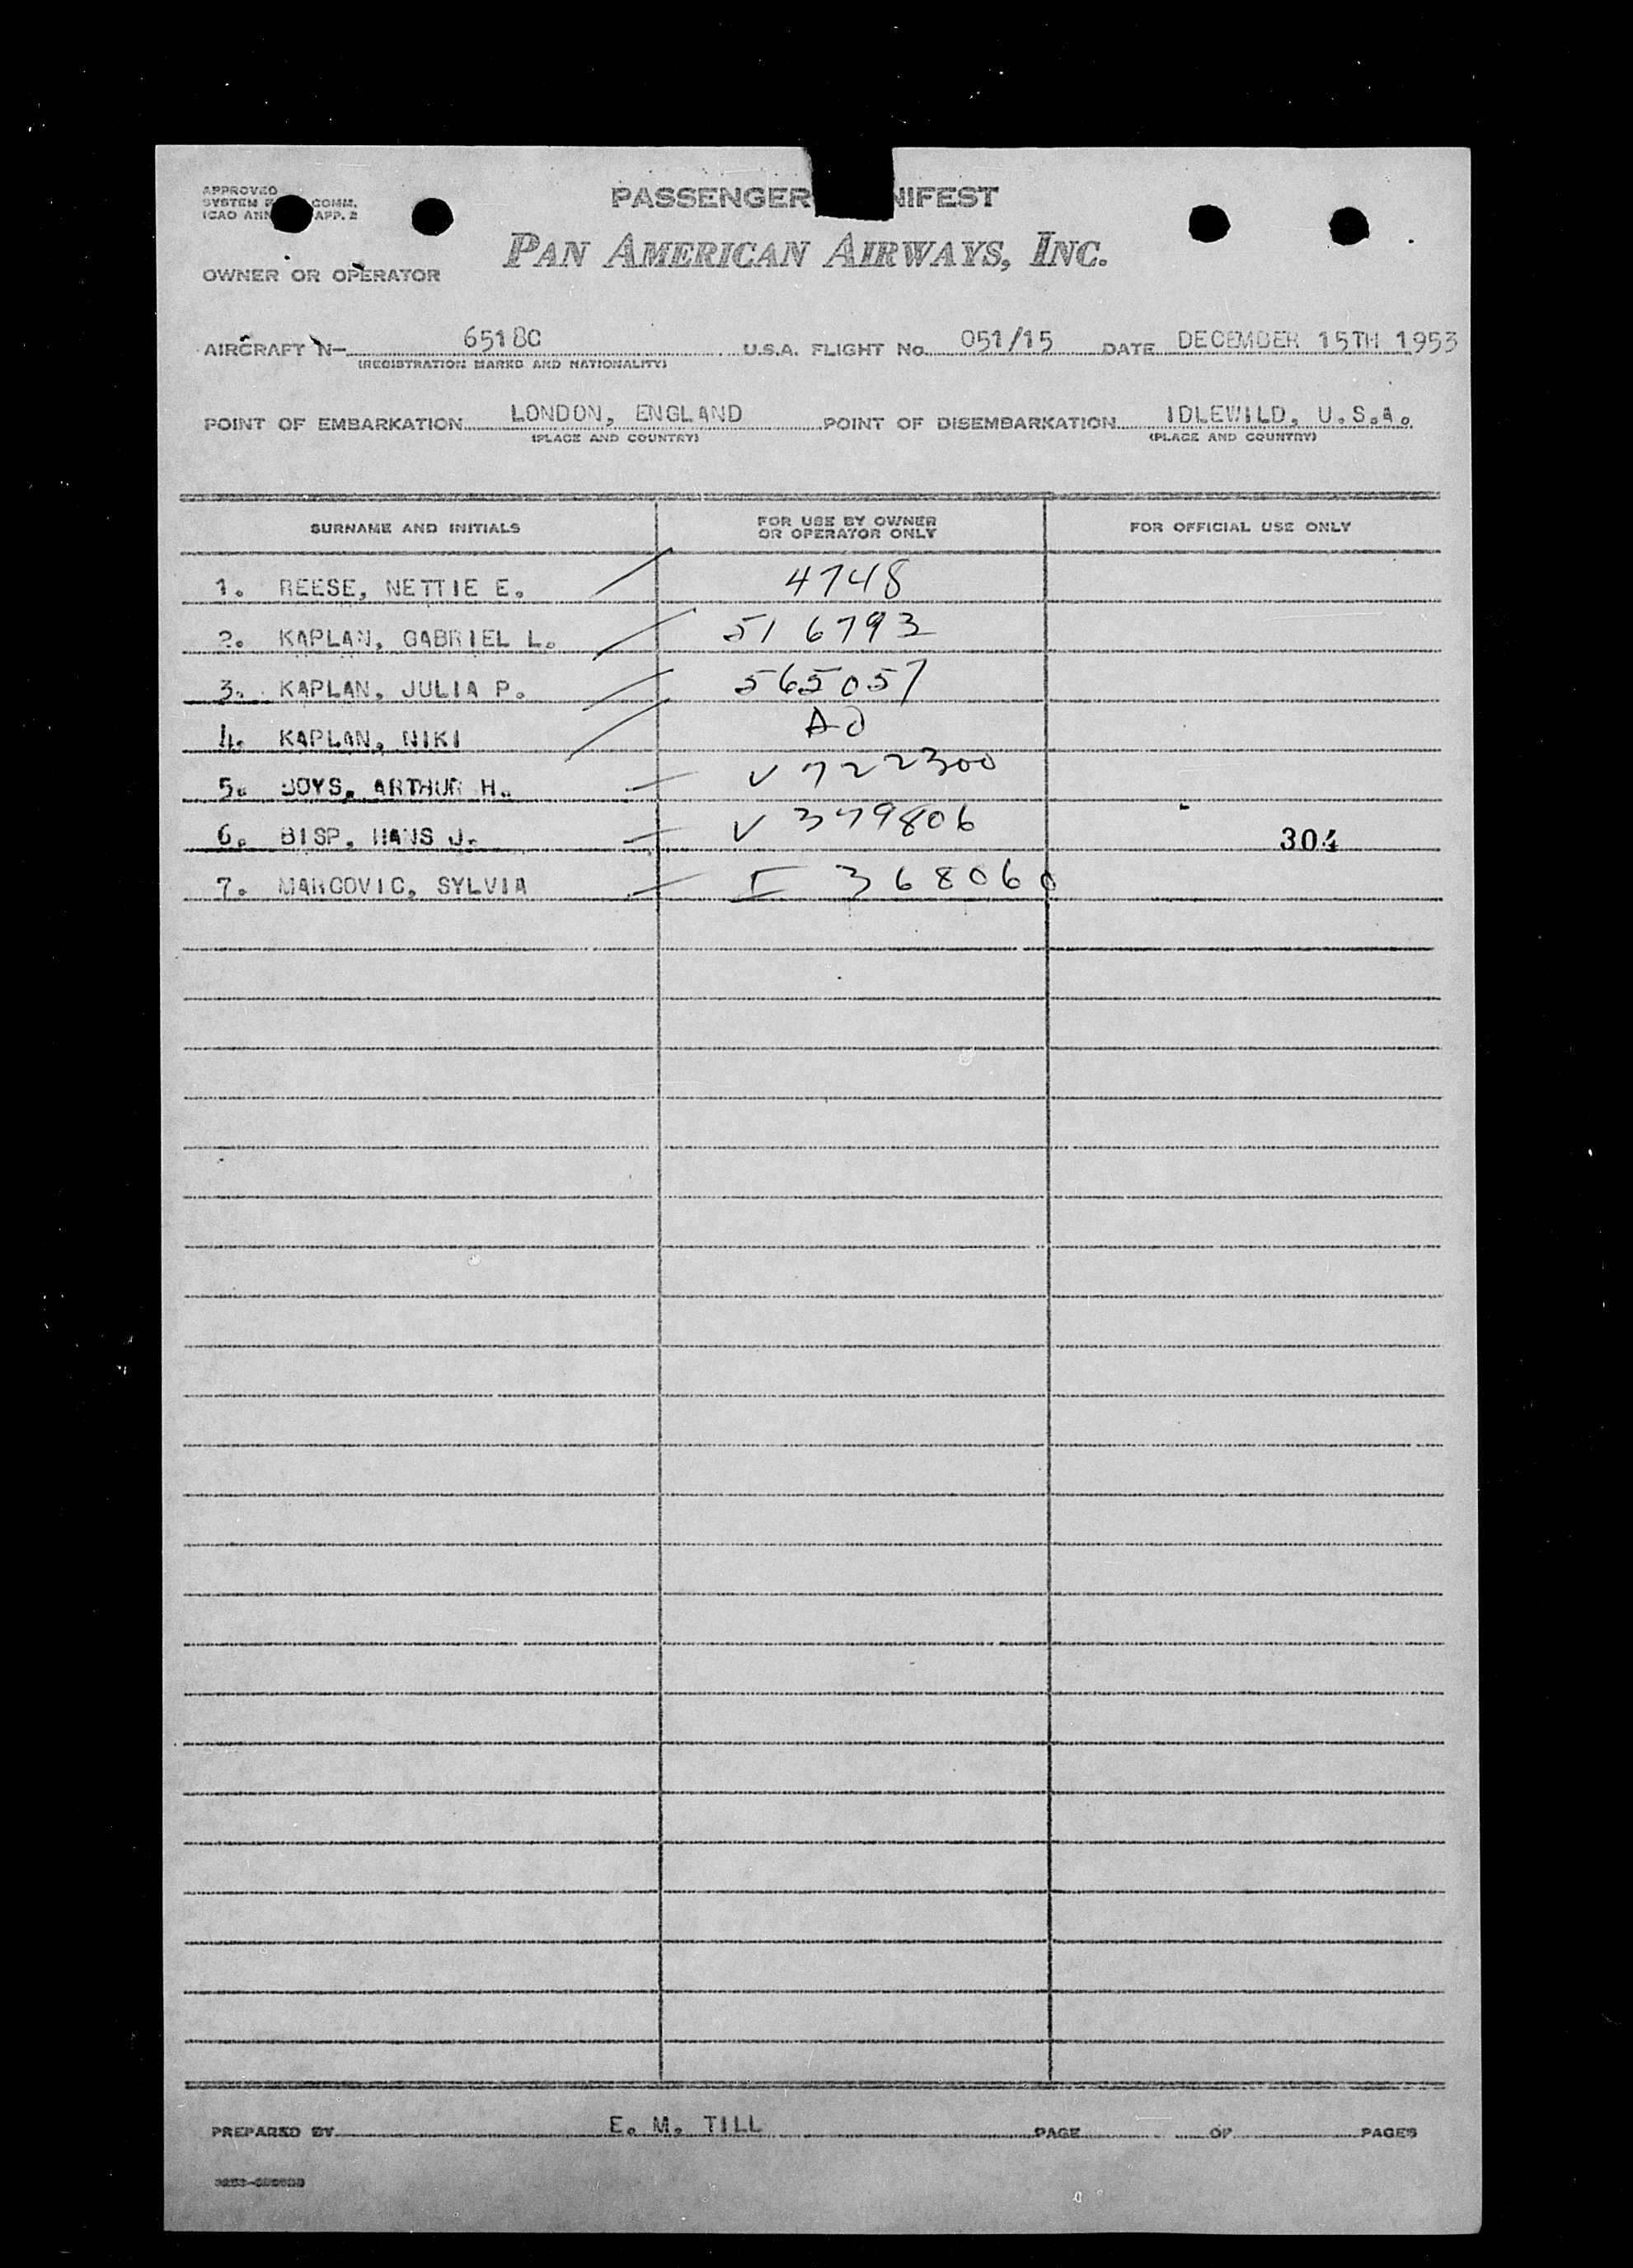 APPROVED
SYSTEM COMM.
ICAO ANN APP. 2
PASSENGER NIFEST
PAN AMERICAN AIRWAYS, INC.
OWNER OR OPERATOR
AIRCRAFT N- 6518C U.S.A. FLIGHT No. 051/15 DATE DECEMBER 15TH 1953
(REGISTRATION MARKS AND NATIONALITY)
POINT OF EMBARKATION LONDON, ENGLAND POINT OF DISEMBARKATION IDLEWILD, U.S.A.
(PLACE AND COUNTRY) (PLACE AND COUNTRY)
SURNAME AND INITIALS FOR USE BY OWNER OR OPERATOR ONLY FOR OFFICIAL USE ONLY
1. REESE, NETTIE E. 4748
2. KAPLAN, GABRIEL L. 516793
3. KAPLAN, JULIA P. 565057
4. KAPLAN, NIKI AO
5. BOYS, ARTHUR H. V 722300
6. BISP, HANS J. V 379806 304
7. MARCOVIC, SYLVIA I 368060
PREPARED BY E. M. TILL PAGE OF PAGES